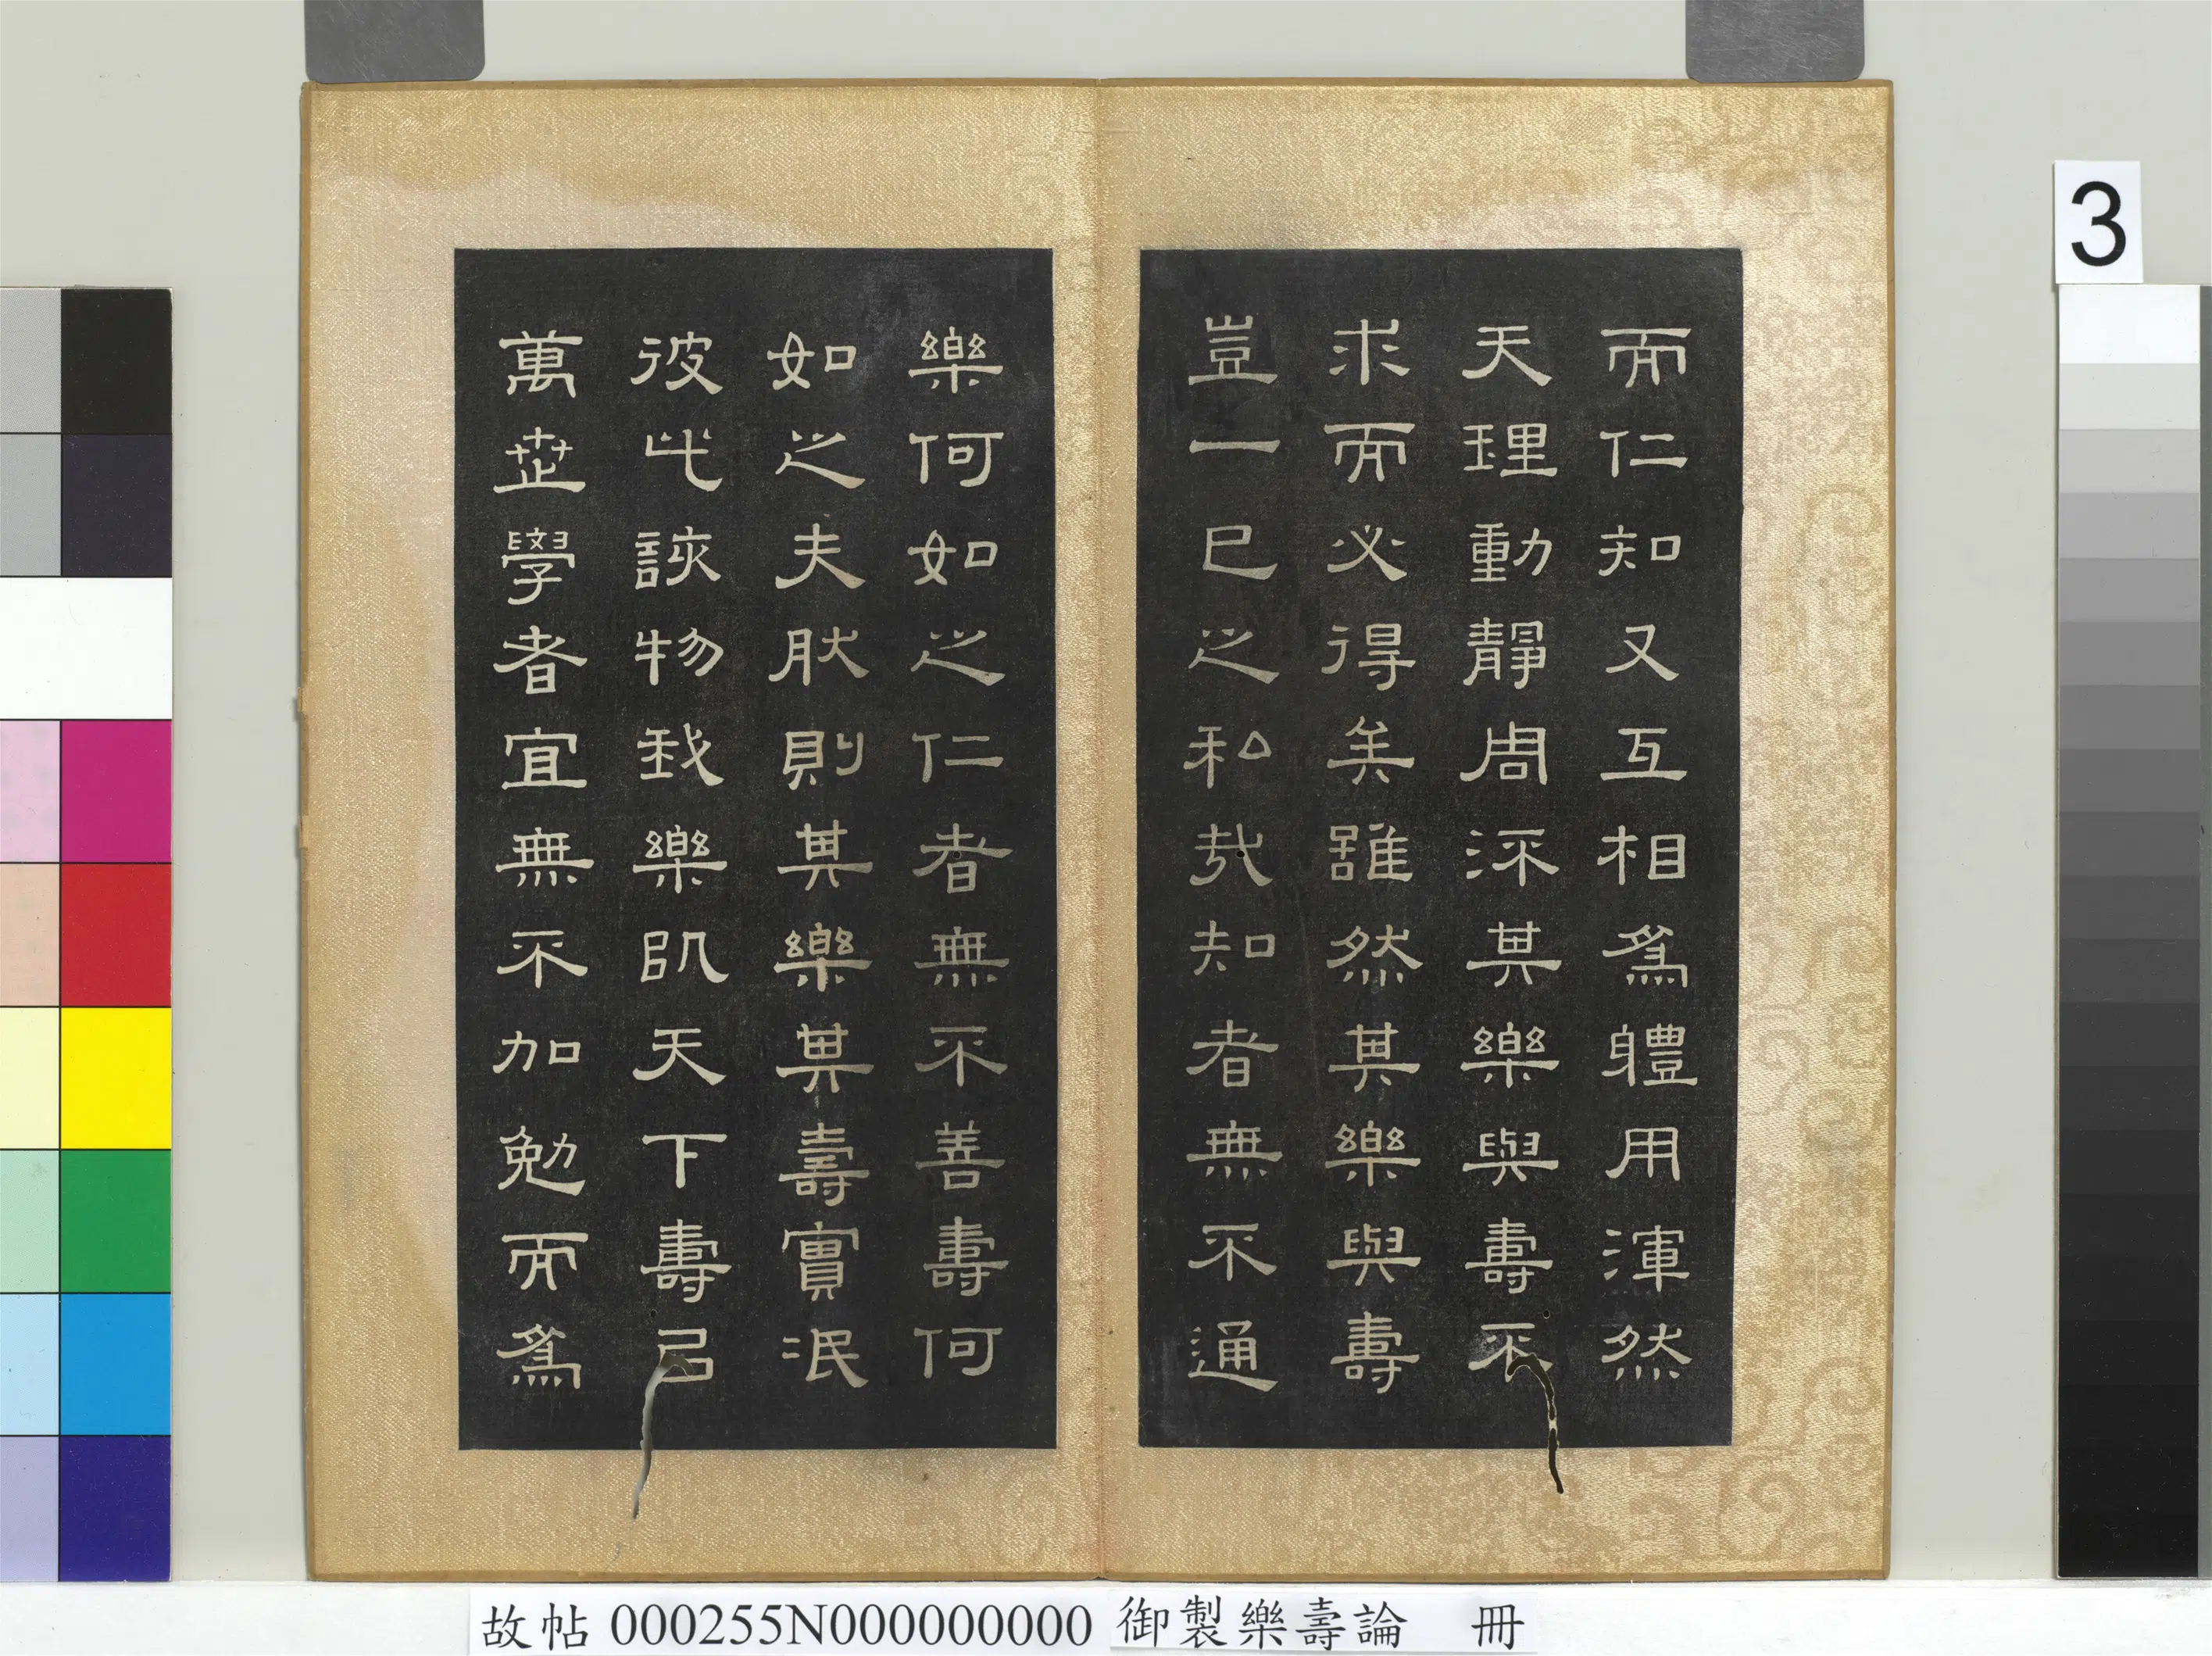 而仁知又互相爲體用渾然
天理動靜周流其樂與壽不
求而必得矣雖然其樂與壽
豈一己之私哉知者無不通
樂何如之仁者無不善壽何
如之夫肰則其樂其壽實泯
彼此該物我樂即天下壽㠯
萬世學者宜無不加勉而爲
3
故帖 000255N000000000 御製樂壽論 冊